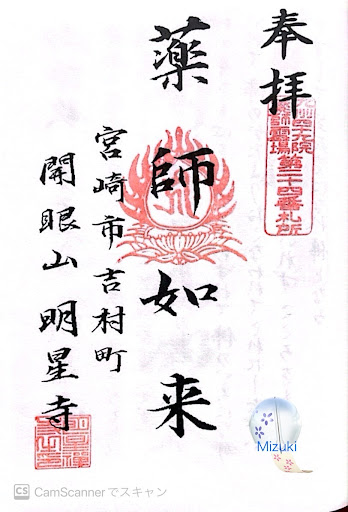 奉拝
九州四十九院
薬師霊場第二十四番札所
薬師如来
宮崎市吉村町
開眼山明星寺
Mizuki
CS CamScannerでスキャン